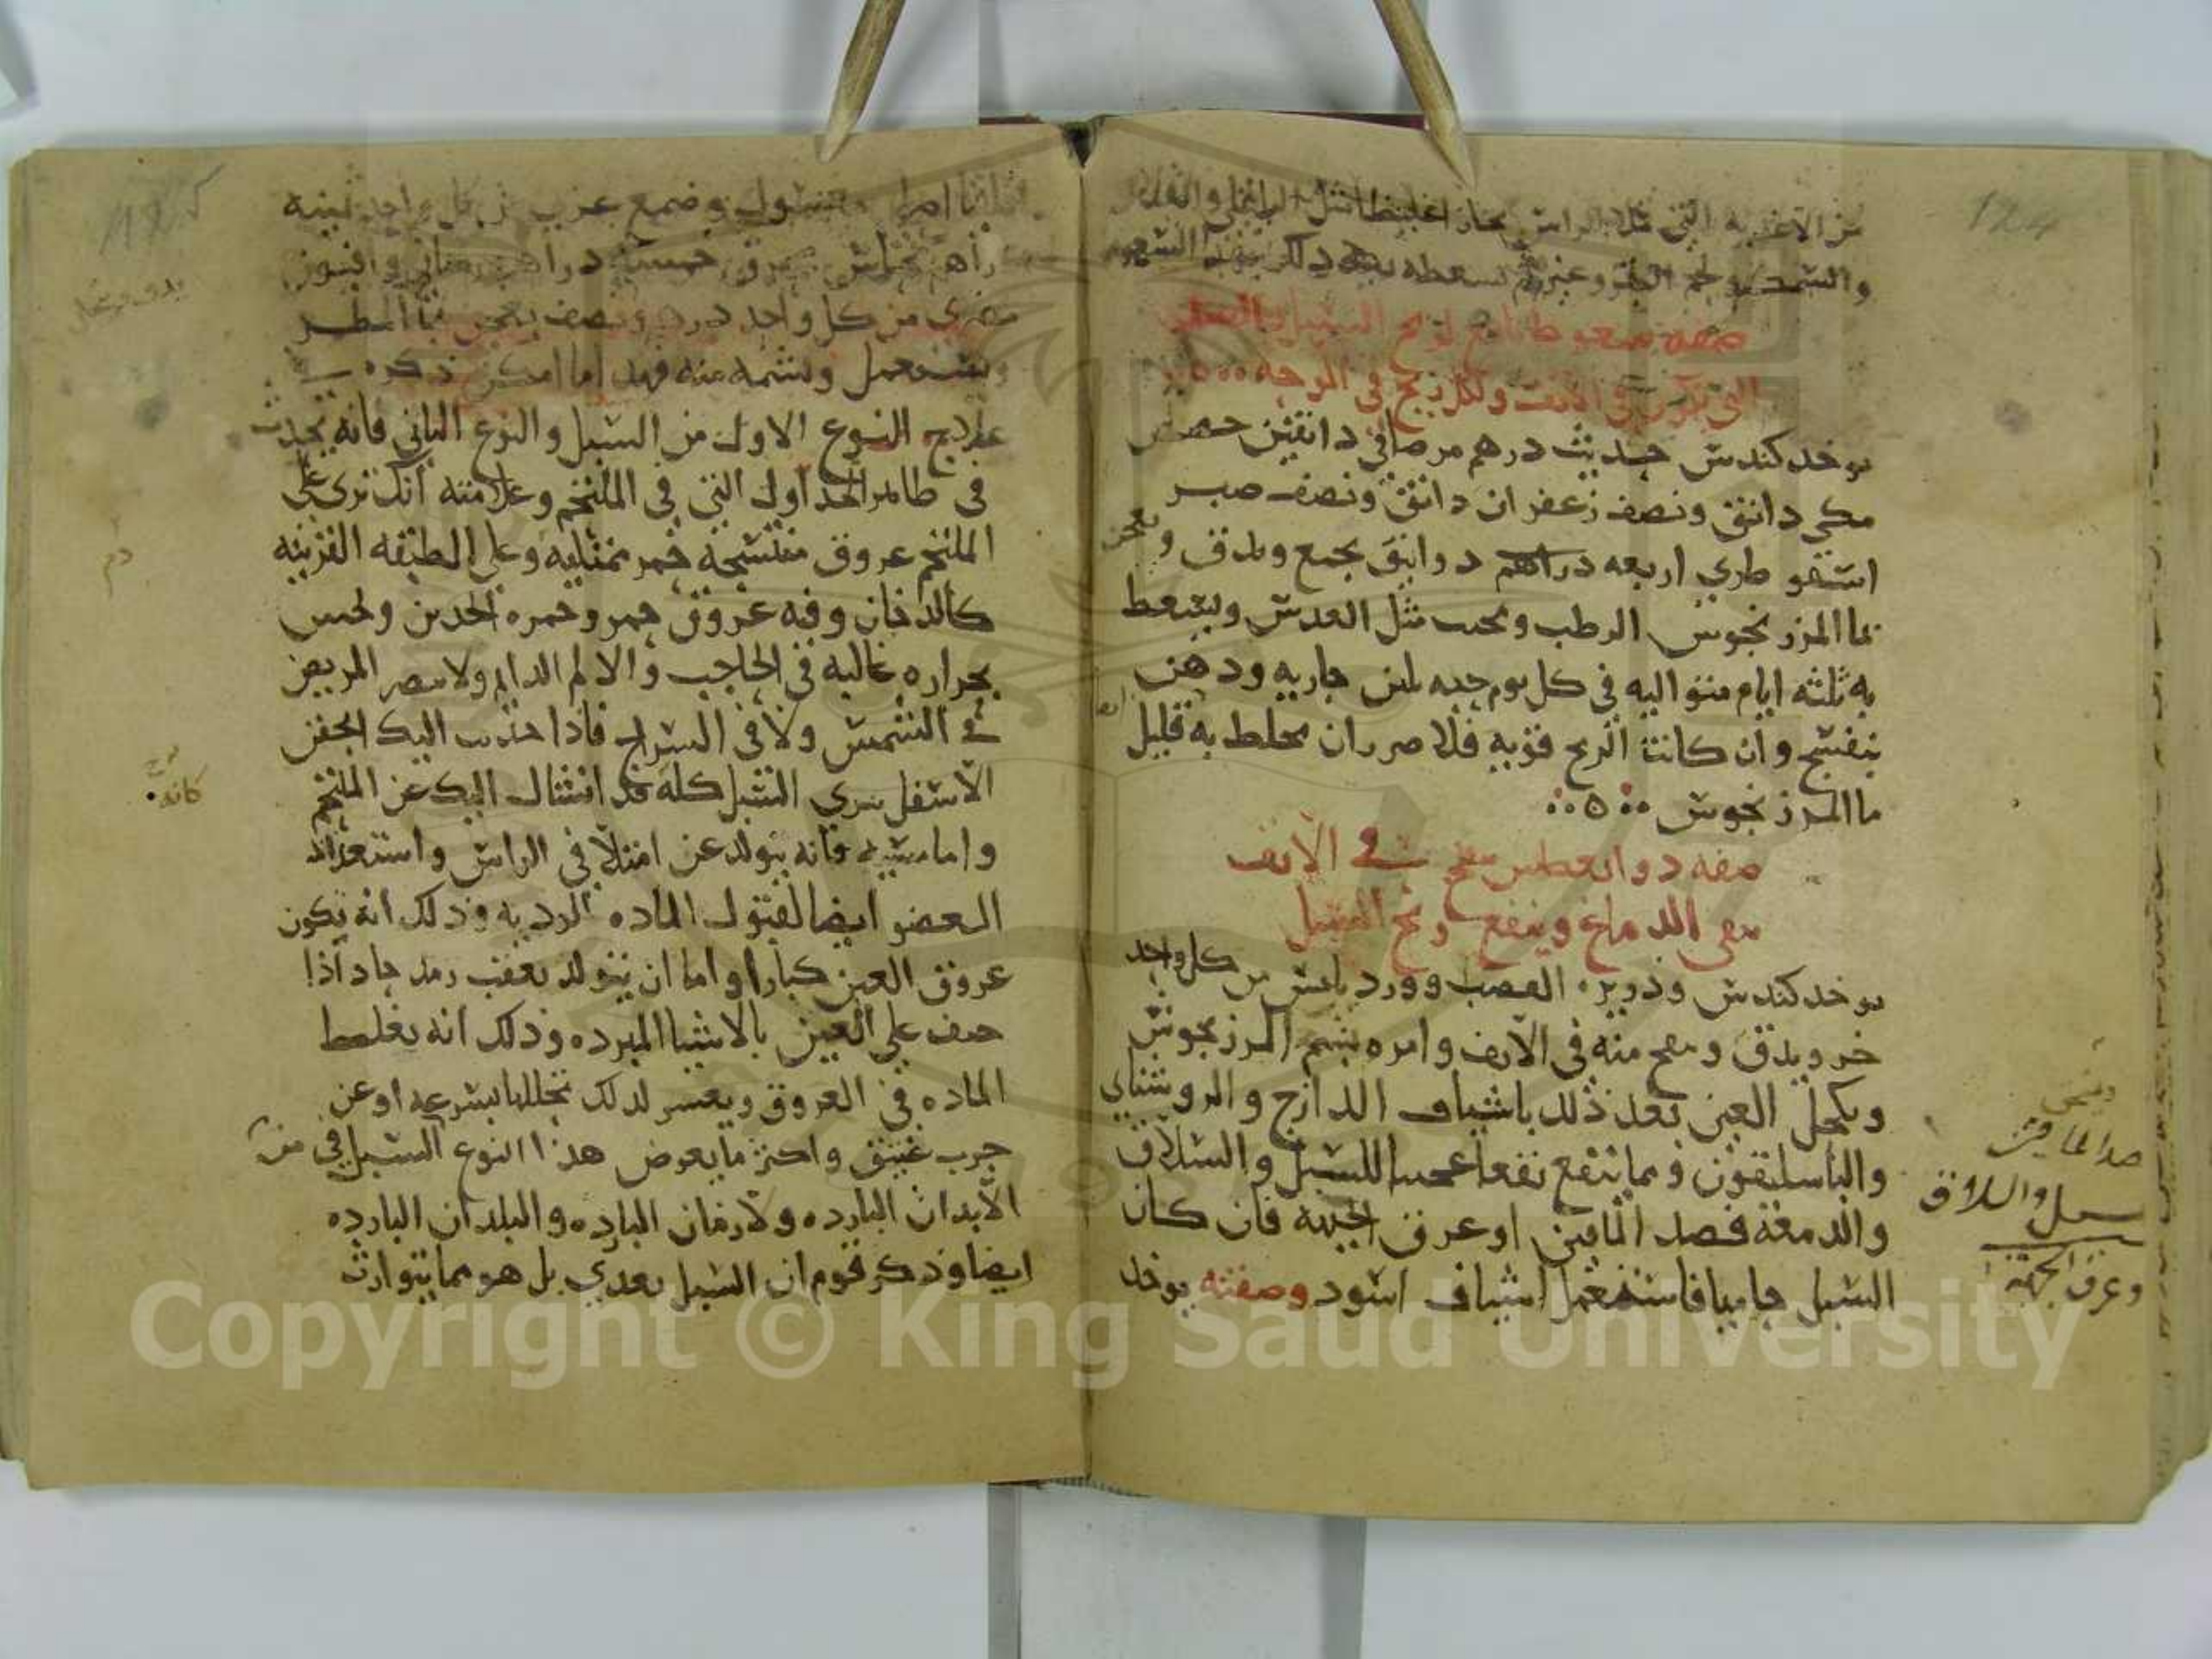 من الاغذيه التي تملا الراس بخارا غليظا مثل الباقلي والعدس
والسمك ولحم البقر وغيره ثم تسعطه بعد ذلك بهذا السعوط
صفه سعوط نافع لريح السبل
التي تكون في الانف ولكل ريح في الوجه
يوخد كندس حديث درهم مر صافي دانقين حصص
مكي دانق ونصف زعفران دانق ونصف صبر
اسقوطري اربعه دراهم دوانيق يجمع ويدق ويعجن
بما المرزنجوش الرطب ويحبب مثل العدس ويسعط
به ثلثه ايام متواليه في كل يوم حبه بلبن جاريه ودهن
بنفسج وان كانت الريح قويه فلا ضرر ان يخلط به قليل
ما المرزنجوش
صفه دوا يعطس ينفخ في الانف
ينقي الدماغ وينفع ريح السبل
يوخد كندس وذريره القصب وورد يابس من كل واحد
جزو يدق وينفخ منه في الانف وامره بشم المرزنجوش
ويكحل العين بعد ذلك باشياف الدارج والروشناي
والباسليقون ومما ينفع نفعا عجيبا للسبل والسلاق
والدمعه فصد الماقين او عرق الجبهه فان كان
السبل حاميا فاستعمل اشياف اسود وصفته يوخد
فصد الماقين
سبل والسلاق
وعرق الجبهة
124
125
مغسول وصمغ عربي من كل واحد ثمنيه
دراهم نحاس محرق خمسه دراهم وافيون
مصري من كل واحد درهم ونصف يعجن بما المطر
ويستعمل ويشمه منه فهدا ما امكن ذكره في
علاج النوع الاول من السبل والنوع الثاني فانه يحدث
في ظاهر الجداول التي في الملتحم وعلامته انك تري علي
الملتحم عروق منتسجه حمر ممتليه وعلي الطبقه القرنيه
كالدخان وفيه عروق حمر وحمره الخدين ويحس
بحراره غاليه في الحاجب والالم الدايم ولا يبصر المريض
في الشمس ولا في السراج فاذا جذبت اليك الجفن
الاسفل تري السبل كله قد انشال اليك عن الملتحم
واما سببه فانه يتولد عن امتلا في الراس واستعداد
العضو ايضا لقبول الماده الرديه وذلك انه يكون
عروق العين كبارا واما ان يتولد بعقب رمد حاد اذا
حيف علي العين بالاشيا المبرده وذلك انه يغلظ
الماده في العروق ويعسر لذلك تحللها بسرعه او عن
جرب عتيق واكثر ما يعرض هذا النوع السبل في
الابدان البارده والازمان البارده والبلدان البارده
ايضا وذكر قوم ان السبل يعدي بل هو مما يتوارث
دم
كانه